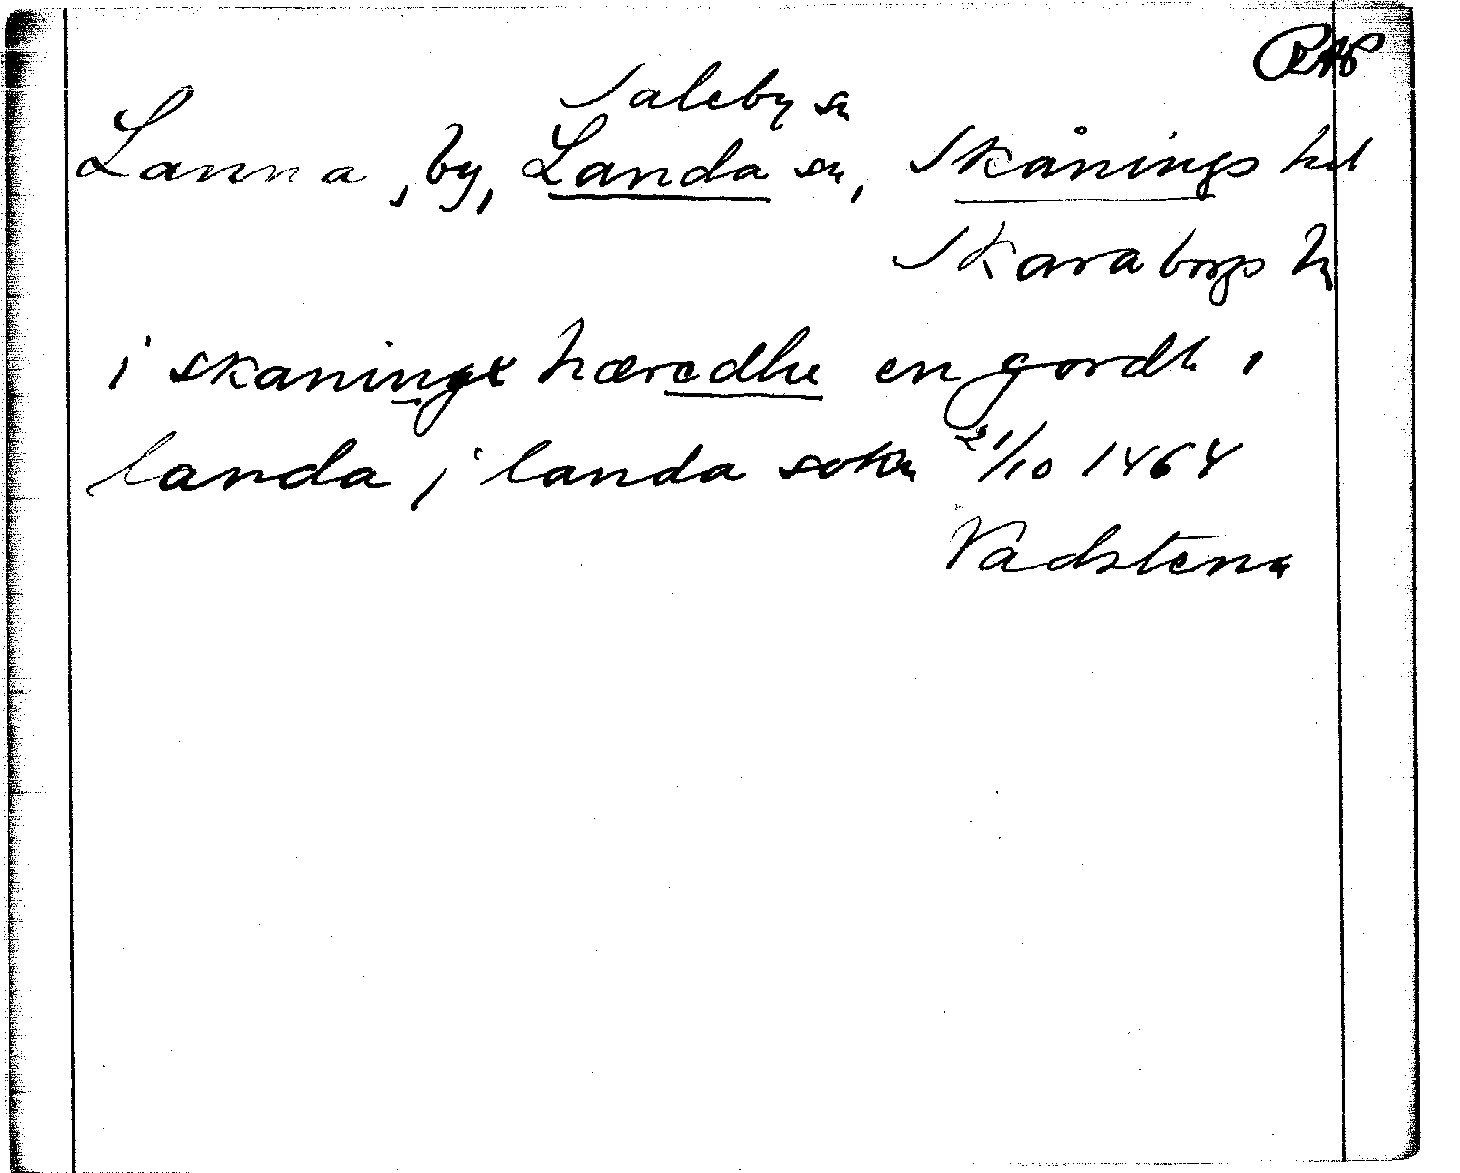 RAP
Saleby sn
Lanna, by, Landa sn, Skånings hd
Skaraborgs ln
i skaningx hæredhe en gordh i
landa j landa sokn 21/10 1464
Vadstena